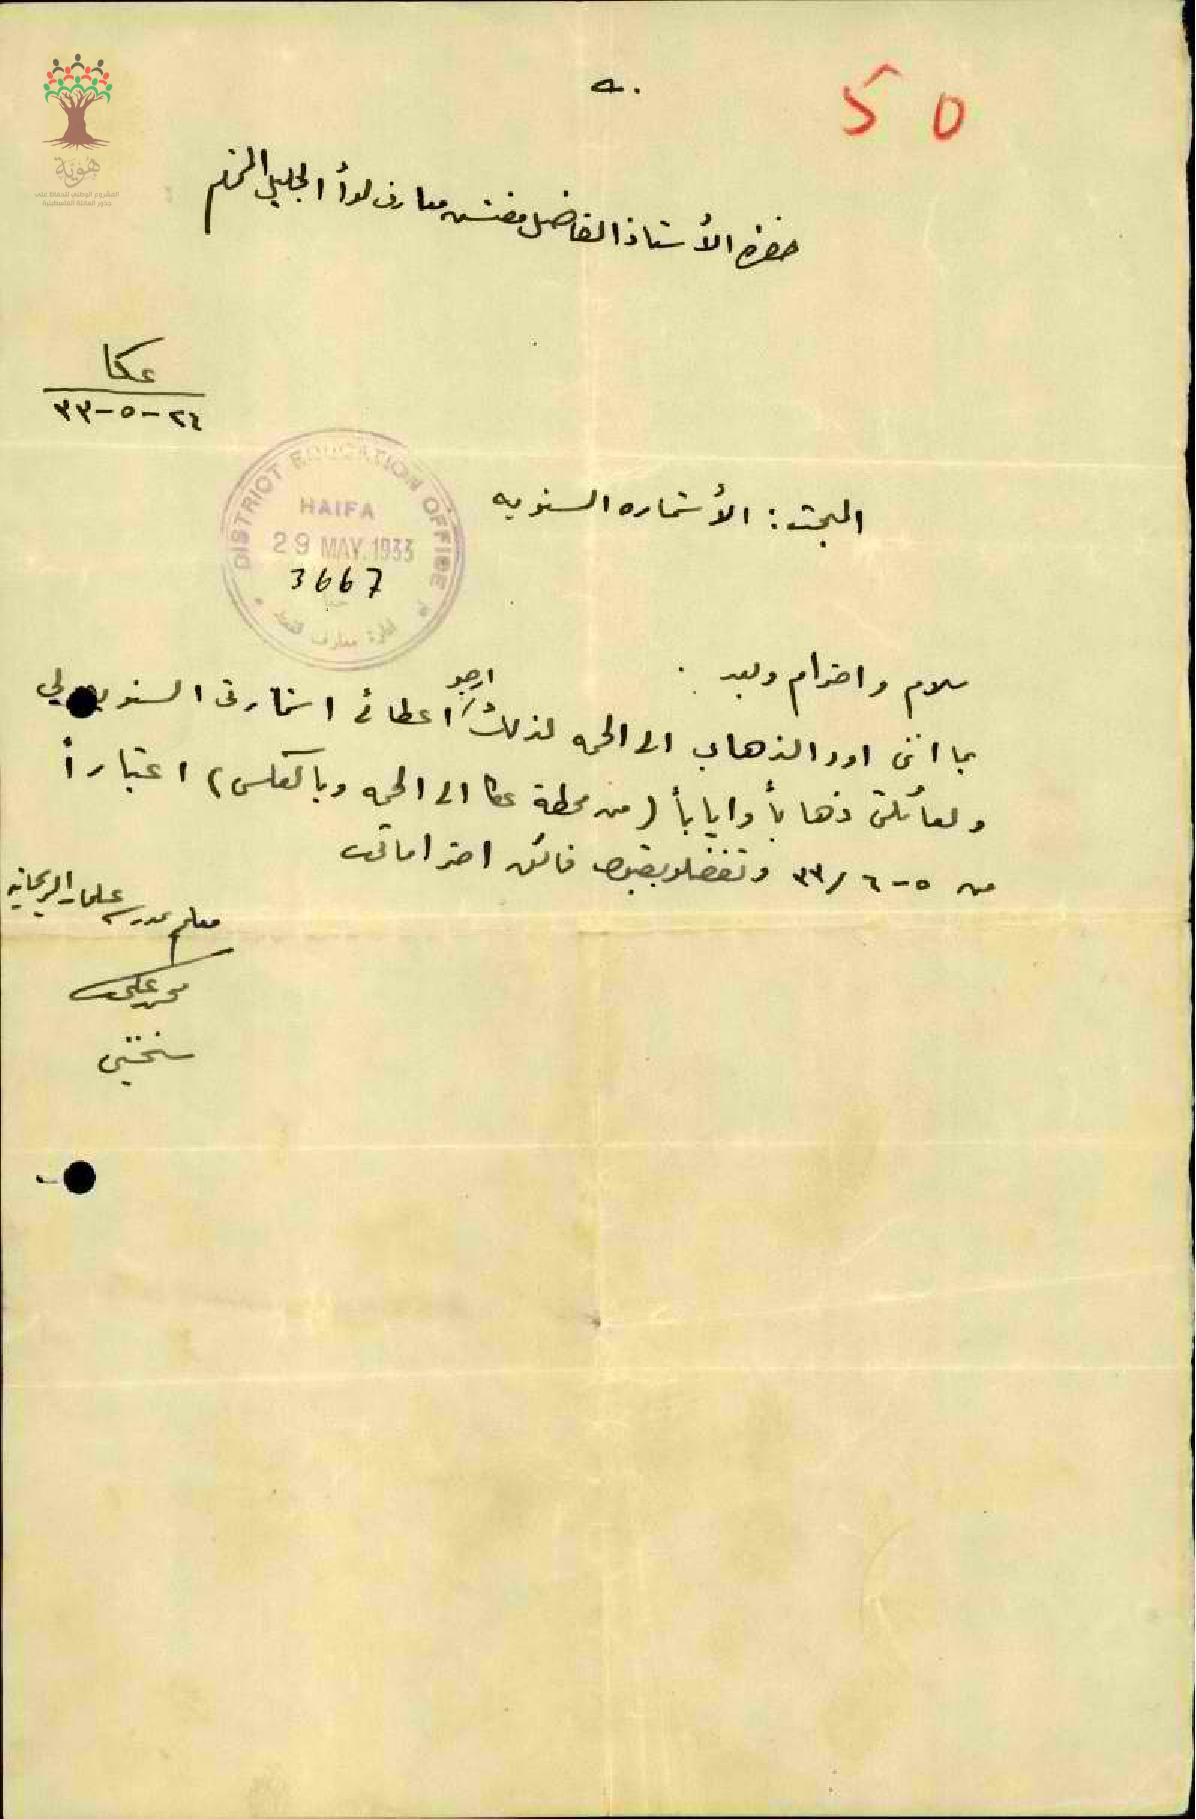 50
هوية
المشروع الوطني للحفاظ على
جذور العائلة الفلسطينية
حضرة الأستاذ الفاضل مفتش معارف لوأ الجليل المفخم
عكا
٢٤-٥-٣٣
DISTRICT EDUCATION OFFICE
HAIFA
29 MAY.1933
3667
حيفا
ادارة معارف لقضاء
المبحث: الأستماره السنويه
سلام واحترام وبعد.
بما انني اود الذهاب الى الحمه لذلك ارجو اعطائي استمارتي السنويه لي
ولعائلتي ذهاباً واياباً (من محطة عكا الى الحمه وبالعكس) اعتباراً
من ٥-٦/٣٣ وتفضلو بقبول فائق احتراماتي
معلم مدرسة علما الريحانيه
محمد علي
سختيني